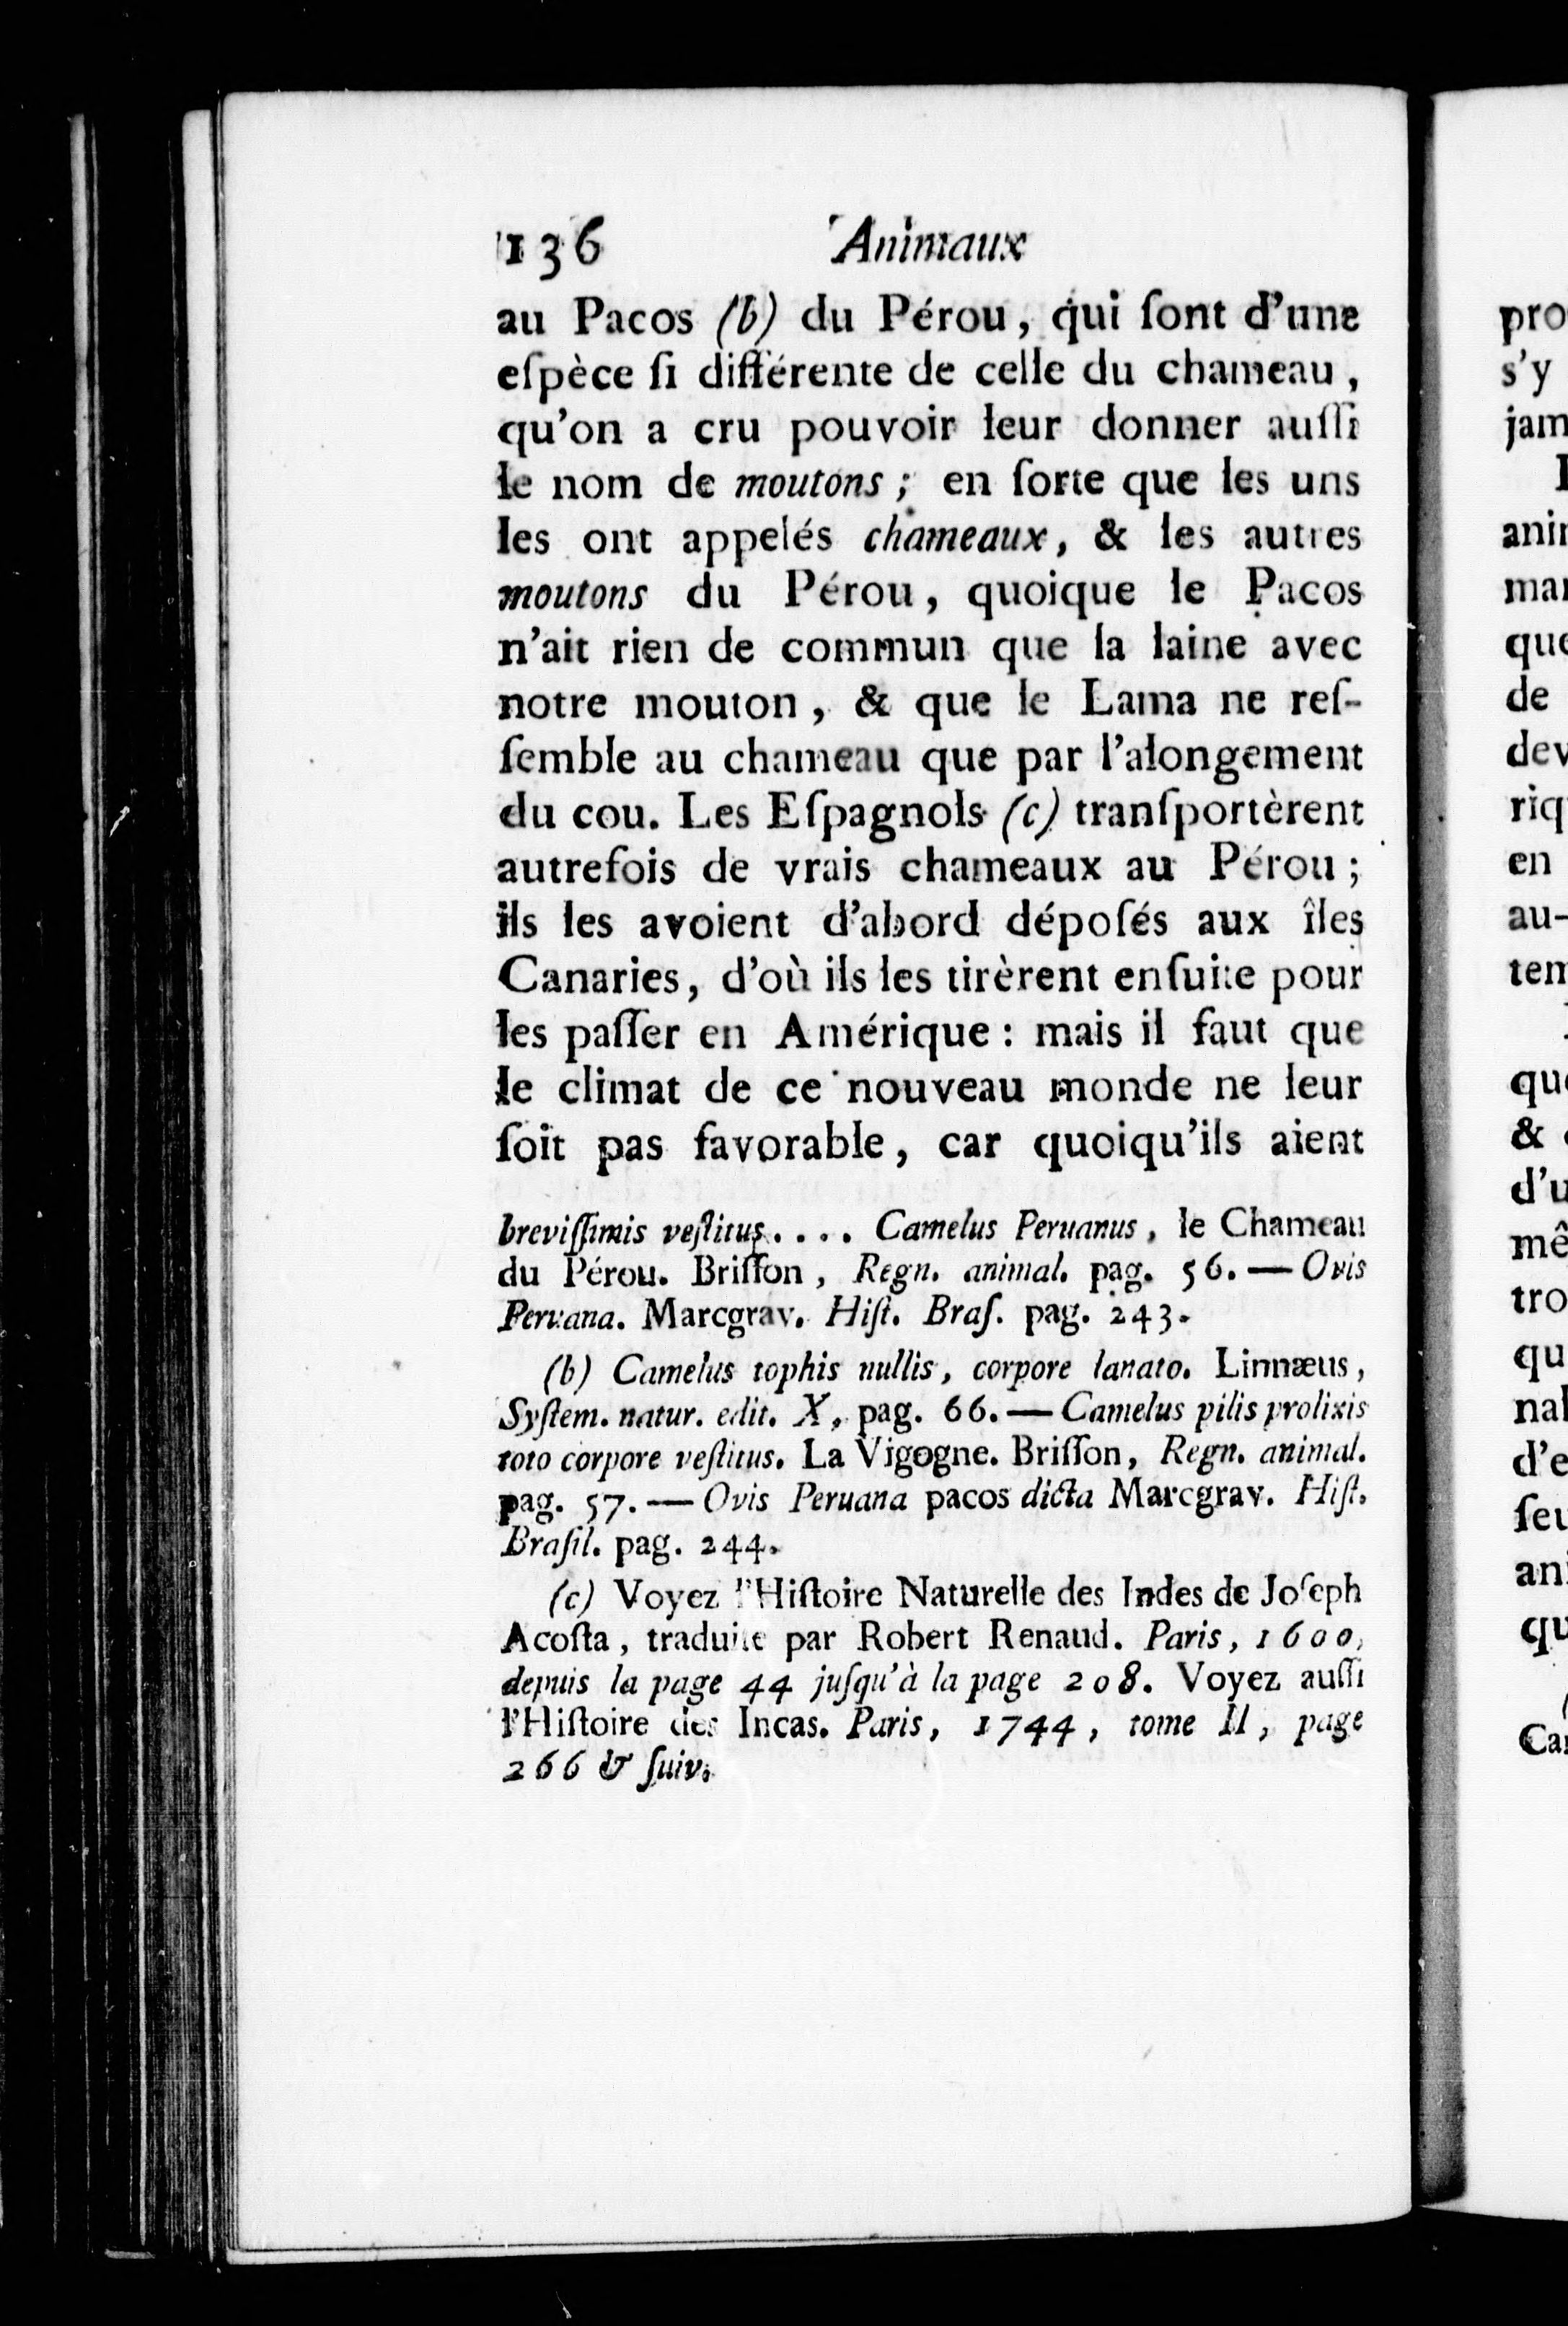 136 Animaux
au Pacos (b) du Pérou, qui ſont d'une
eſpèce ſi différente de celle du chameau,
qu'on a cru pouvoir leur donner auſſi
le nom de moutons; en ſorte que les uns
les ont appelés chameaux, & les autres
moutons du Pérou, quoique le Pacos
n'ait rien de commun que la laine avec
notre mouton, & que le Lama ne reſ-
ſemble au chameau que par l'alongement
du cou. Les Eſpagnols (c) tranſportèrent
autrefois de vrais chameaux au Pérou;
ils les avoient d'abord dépoſés aux îles
Canaries, d'où ils les tirèrent enſuite pour
les paſſer en Amérique: mais il faut que
le climat de ce nouveau monde ne leur
ſoit pas favorable, car quoiqu'ils aient
breviſſimis veſtitus.... Camelus Peruanus, le Chameau
du Pérou. Briſſon, Regn. animal. pag. 56. — Ovis
Peruana. Marcgrav. Hiſt. Braſ. pag. 243.
(b) Camelus tophis nullis, corpore lanato. Linnæus,
Syſtem. natur. edit. X, pag. 66. — Camelus pilis prolixis
toto corpore veſtitus. La Vigogne. Briſſon, Regn. animal.
pag. 57. — Ovis Peruana pacos dicta Marcgrav. Hiſt.
Braſil. pag. 244.
(c) Voyez l'Hiſtoire Naturelle des Indes de Joſeph
Acoſta, traduite par Robert Renaud. Paris, 1600,
depuis la page 44 juſqu'à la page 208. Voyez auſſi
l'Hiſtoire des Incas. Paris, 1744, tome II, page
266 & ſuiv.
pro
s'y
jam
anim
mar
que
de
dev
riq
en
au-
tem
que
& 
d'u
mê
tro
qu
nal
d'e
ſeu
ani
qu
Car